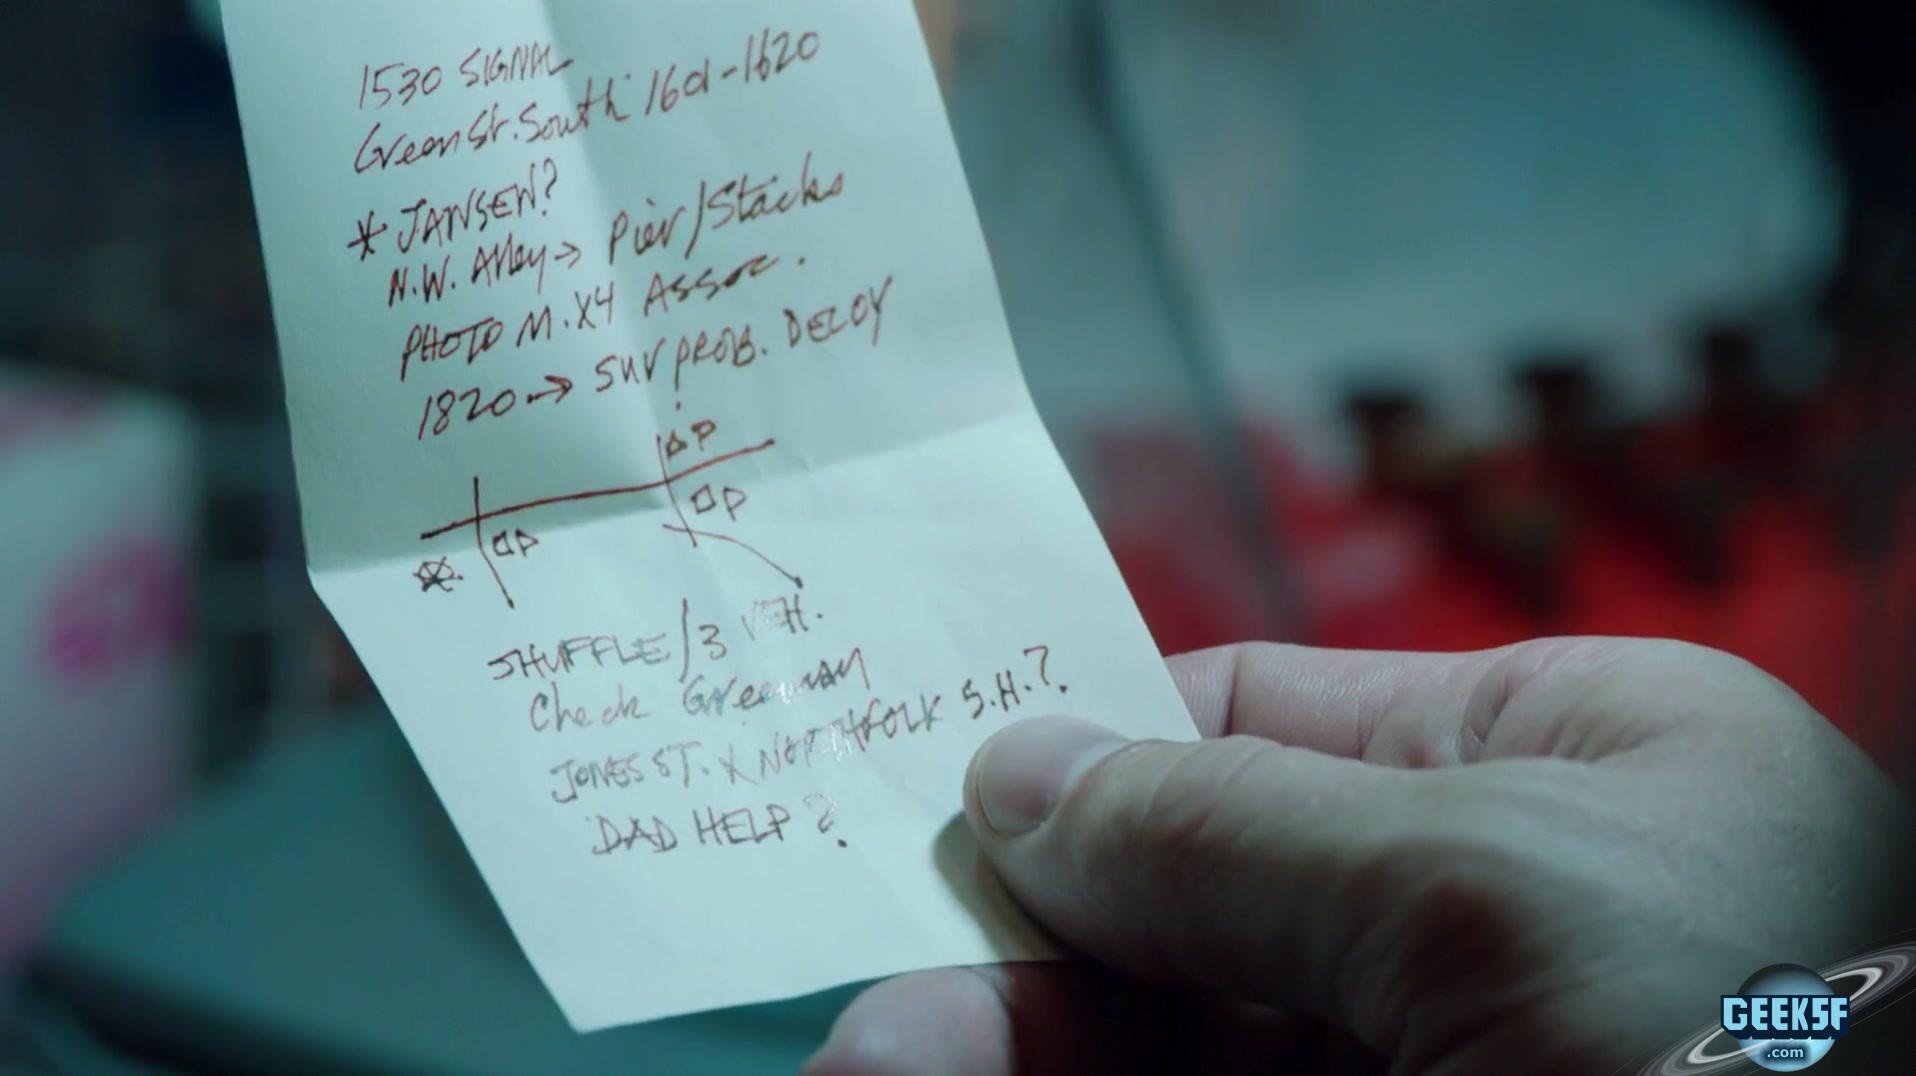 1530 SIGNAL
Green St. South 1601-1620
* JANSEN?
N.W. Alley → Pier/Stacks
PHOTO M. X4 ASSOC.
1820 → SUV PROB. DECOY
ΔP
□P
□P
SHUFFLE/3 VEH.
Check Greenway
JONES ST. X NORTHFOLK S.H.?
DAD HELP?
GEEKSF
.com